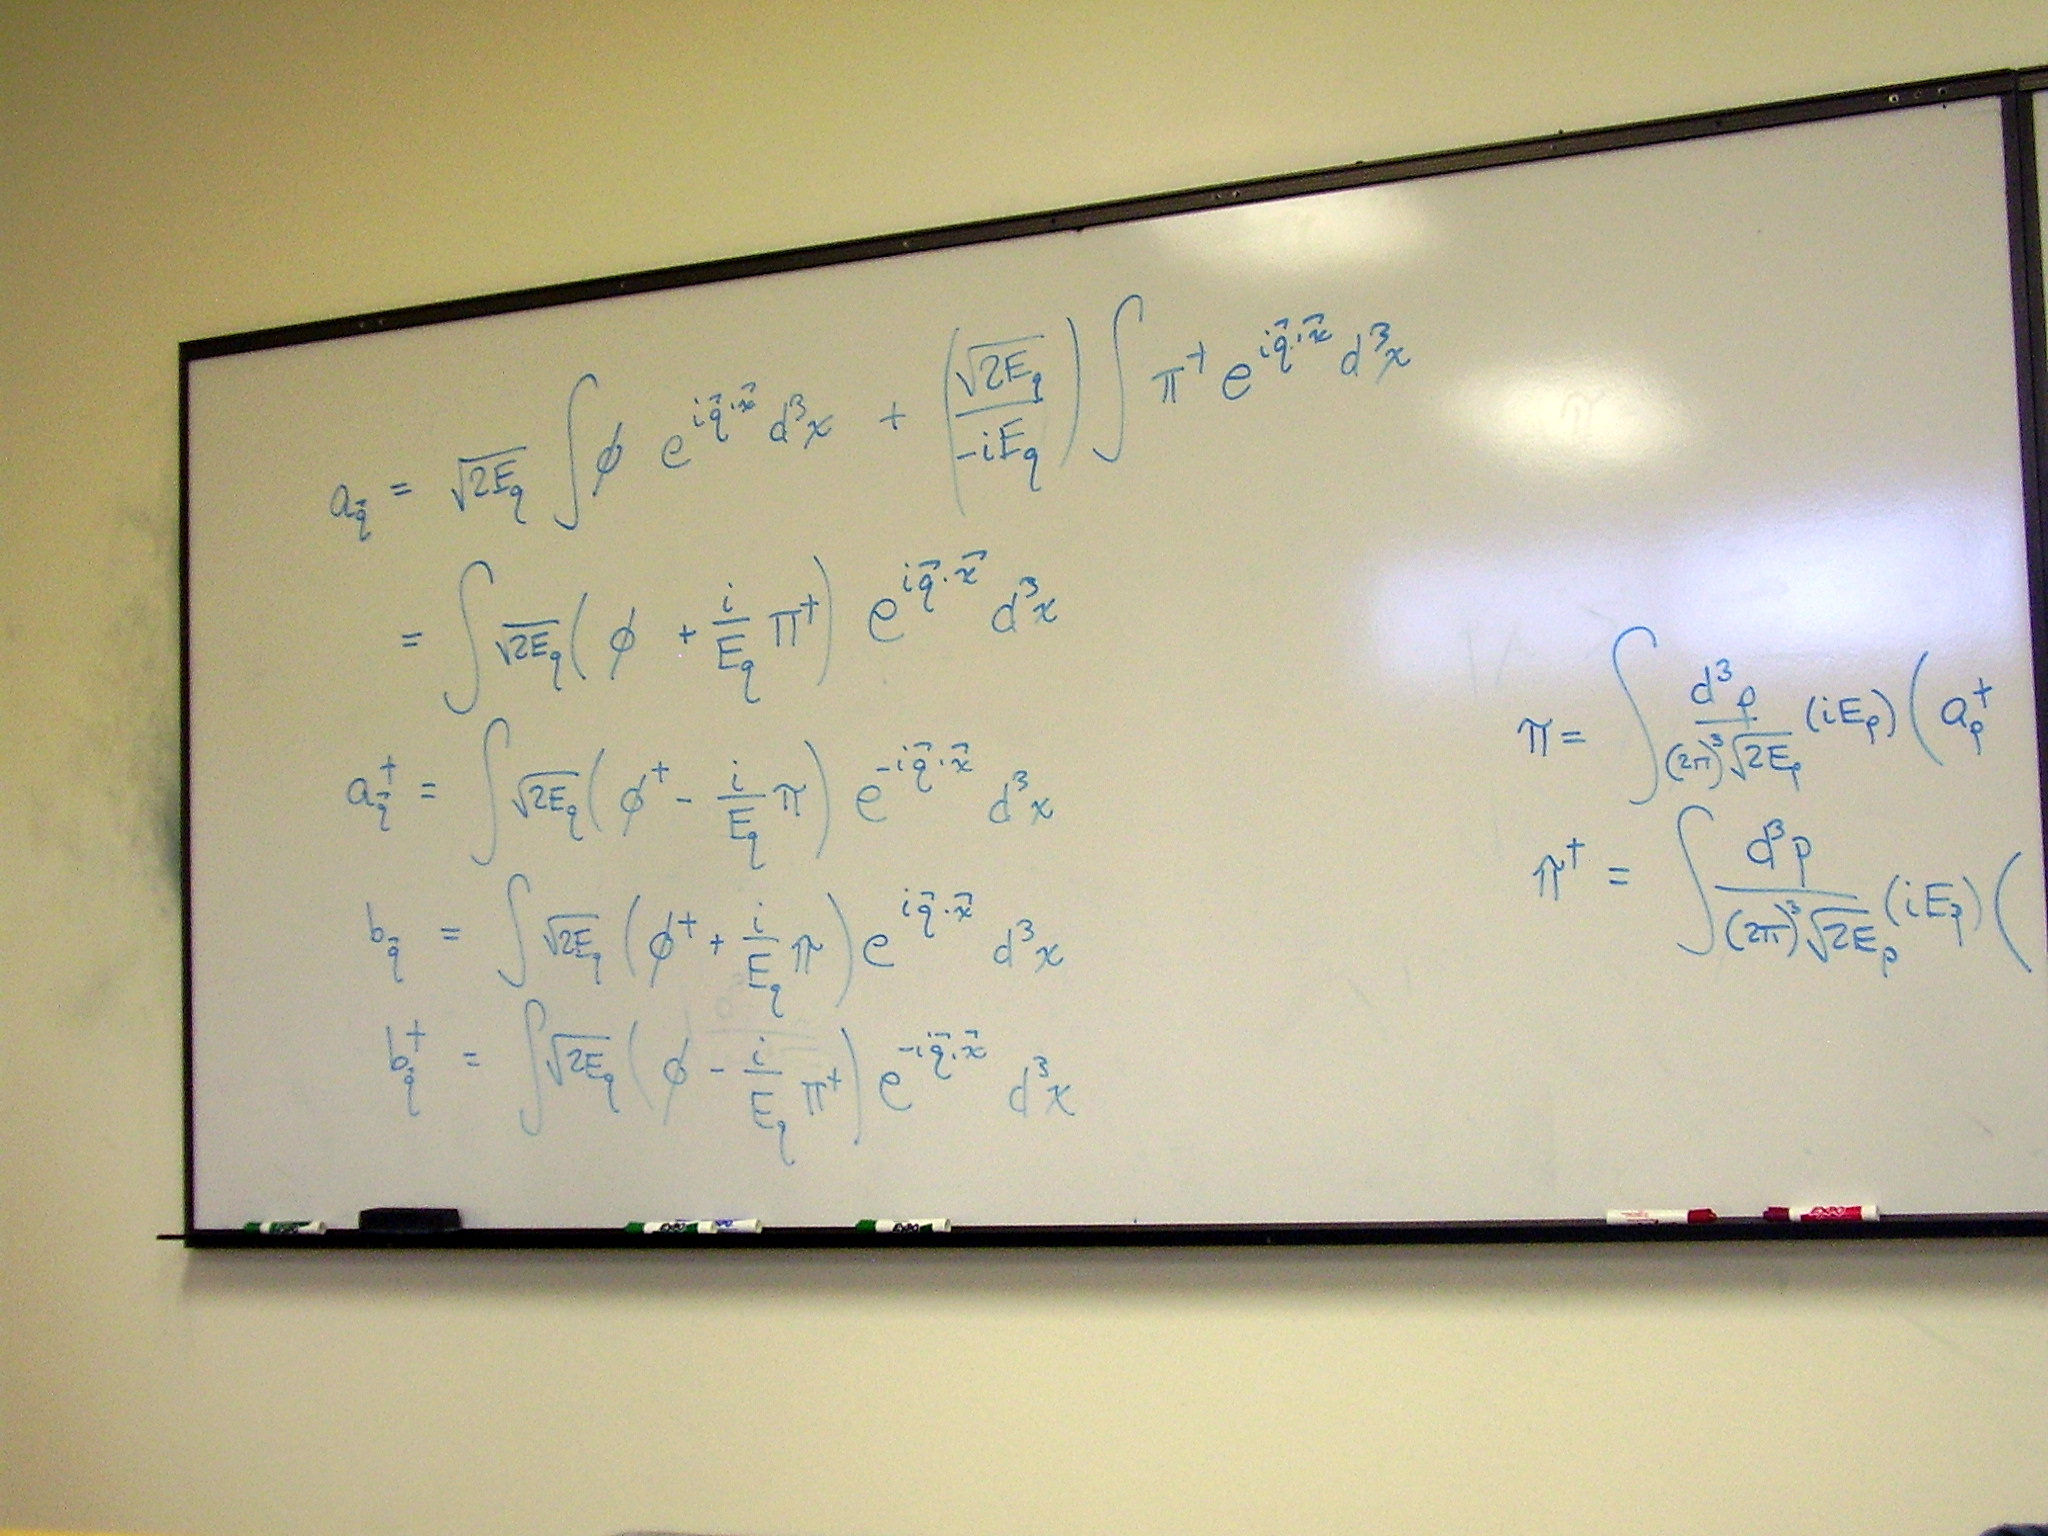 a_q⃗ = √2E_q ∫ ϕ e^{iq⃗·x⃗} d³x + (√2E_q / -iE_q) ∫ π† e^{iq⃗·x⃗} d³x
= ∫ √2E_q ( ϕ + i/E_q π† ) e^{iq⃗·x⃗} d³x
a†_q⃗ = ∫ √2E_q ( ϕ† - i/E_q π ) e^{-iq⃗·x⃗} d³x
b_q⃗ = ∫ √2E_q ( ϕ† + i/E_q π ) e^{iq⃗·x⃗} d³x
b†_q⃗ = ∫ √2E_q ( ϕ - i/E_q π† ) e^{-iq⃗·x⃗} d³x
π = ∫ d³p / (2π)³√2E_p (iE_p) ( a†_p
π† = ∫ d³p / (2π)³√2E_p (iE_p) (
EXPO